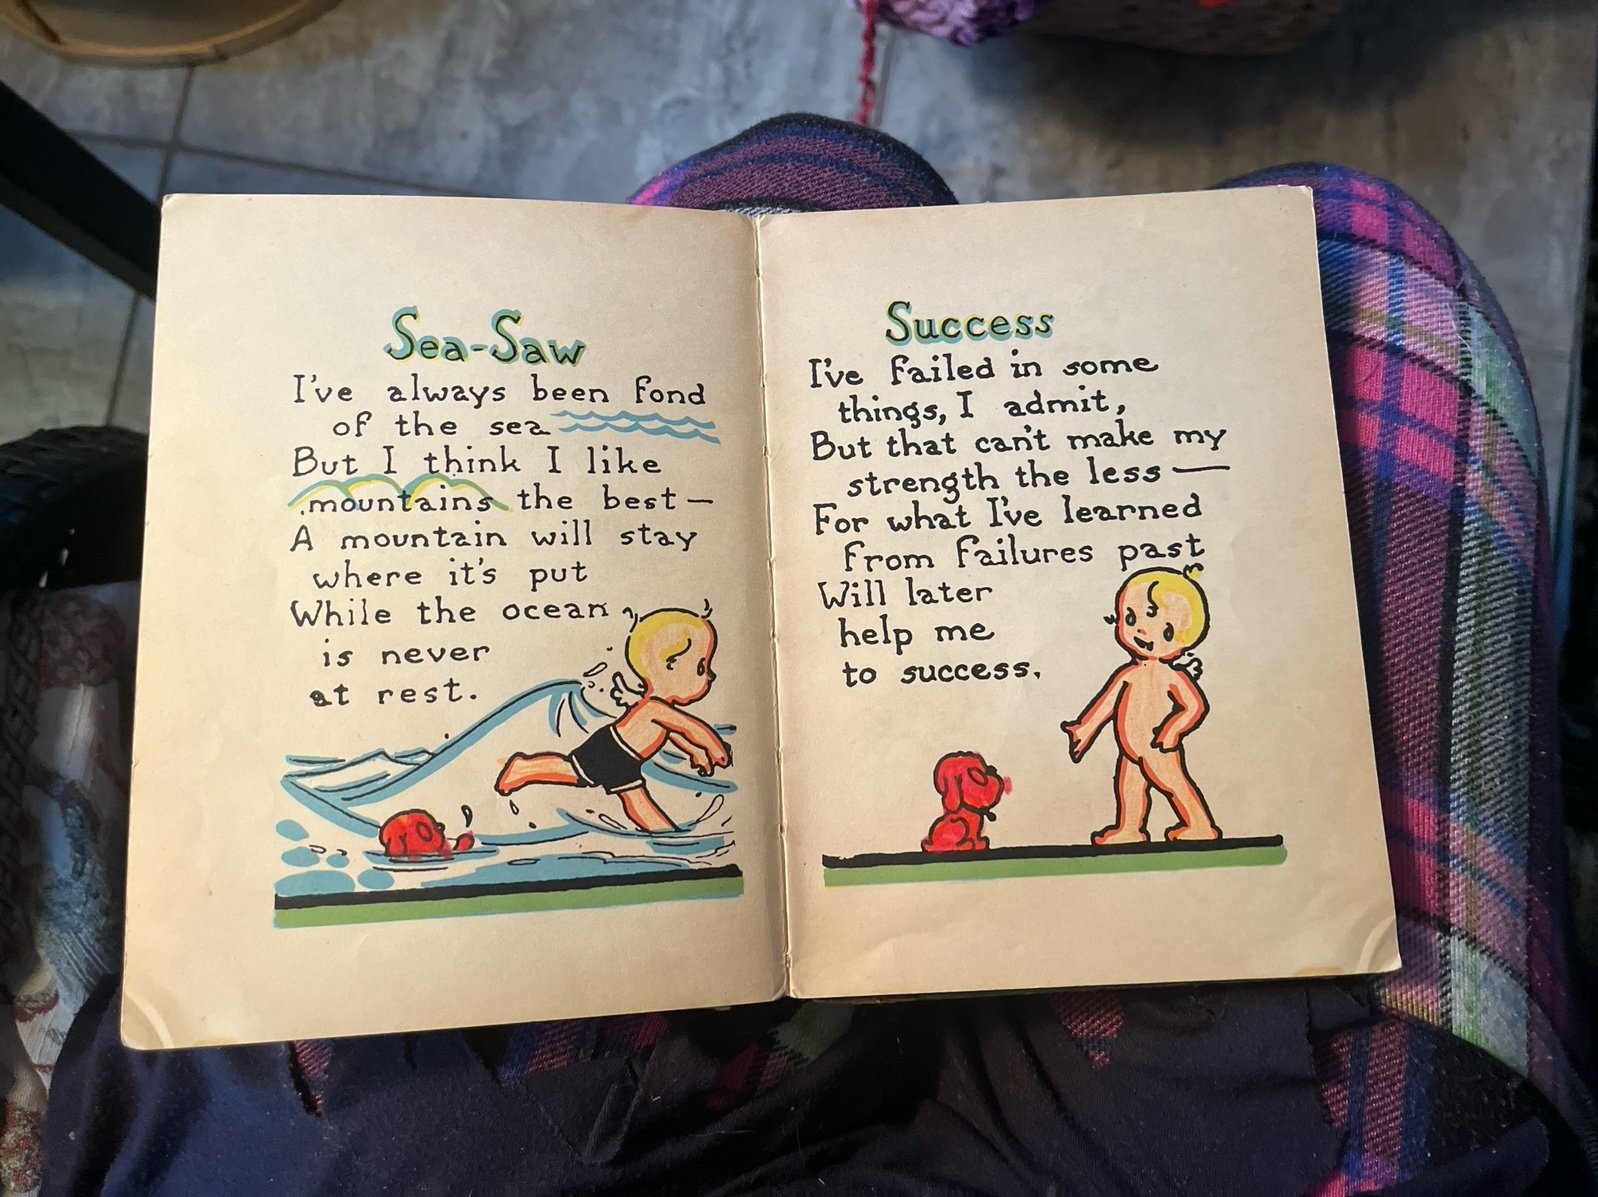 Sea-Saw
I've always been fond
of the sea
But I think I like
mountains the best—
A mountain will stay
where it's put
While the ocean
is never
at rest.
Success
I've failed in some
things, I admit,
But that can't make my
strength the less —
For what I've learned
from failures past
Will later
help me
to success.